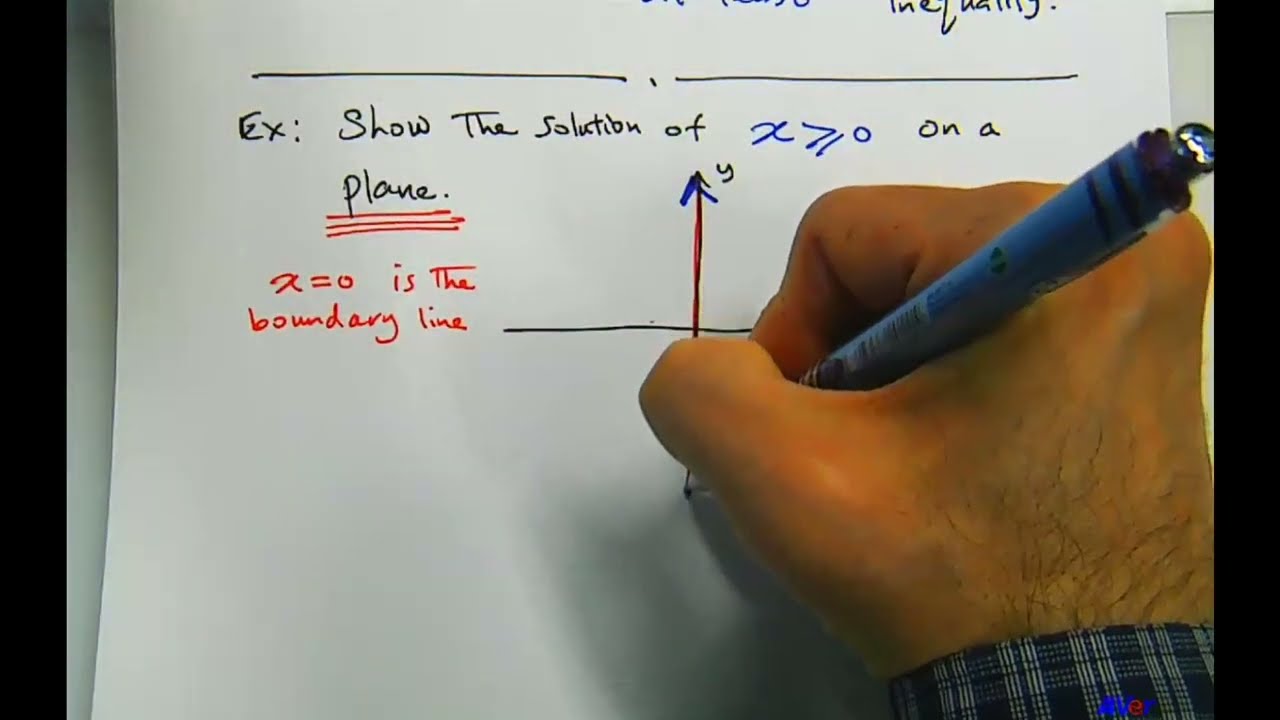 inequality.
Ex: Show The Solution of x ⩾ 0 on a
plane.
y
x=0 is The
boundary line
AVer